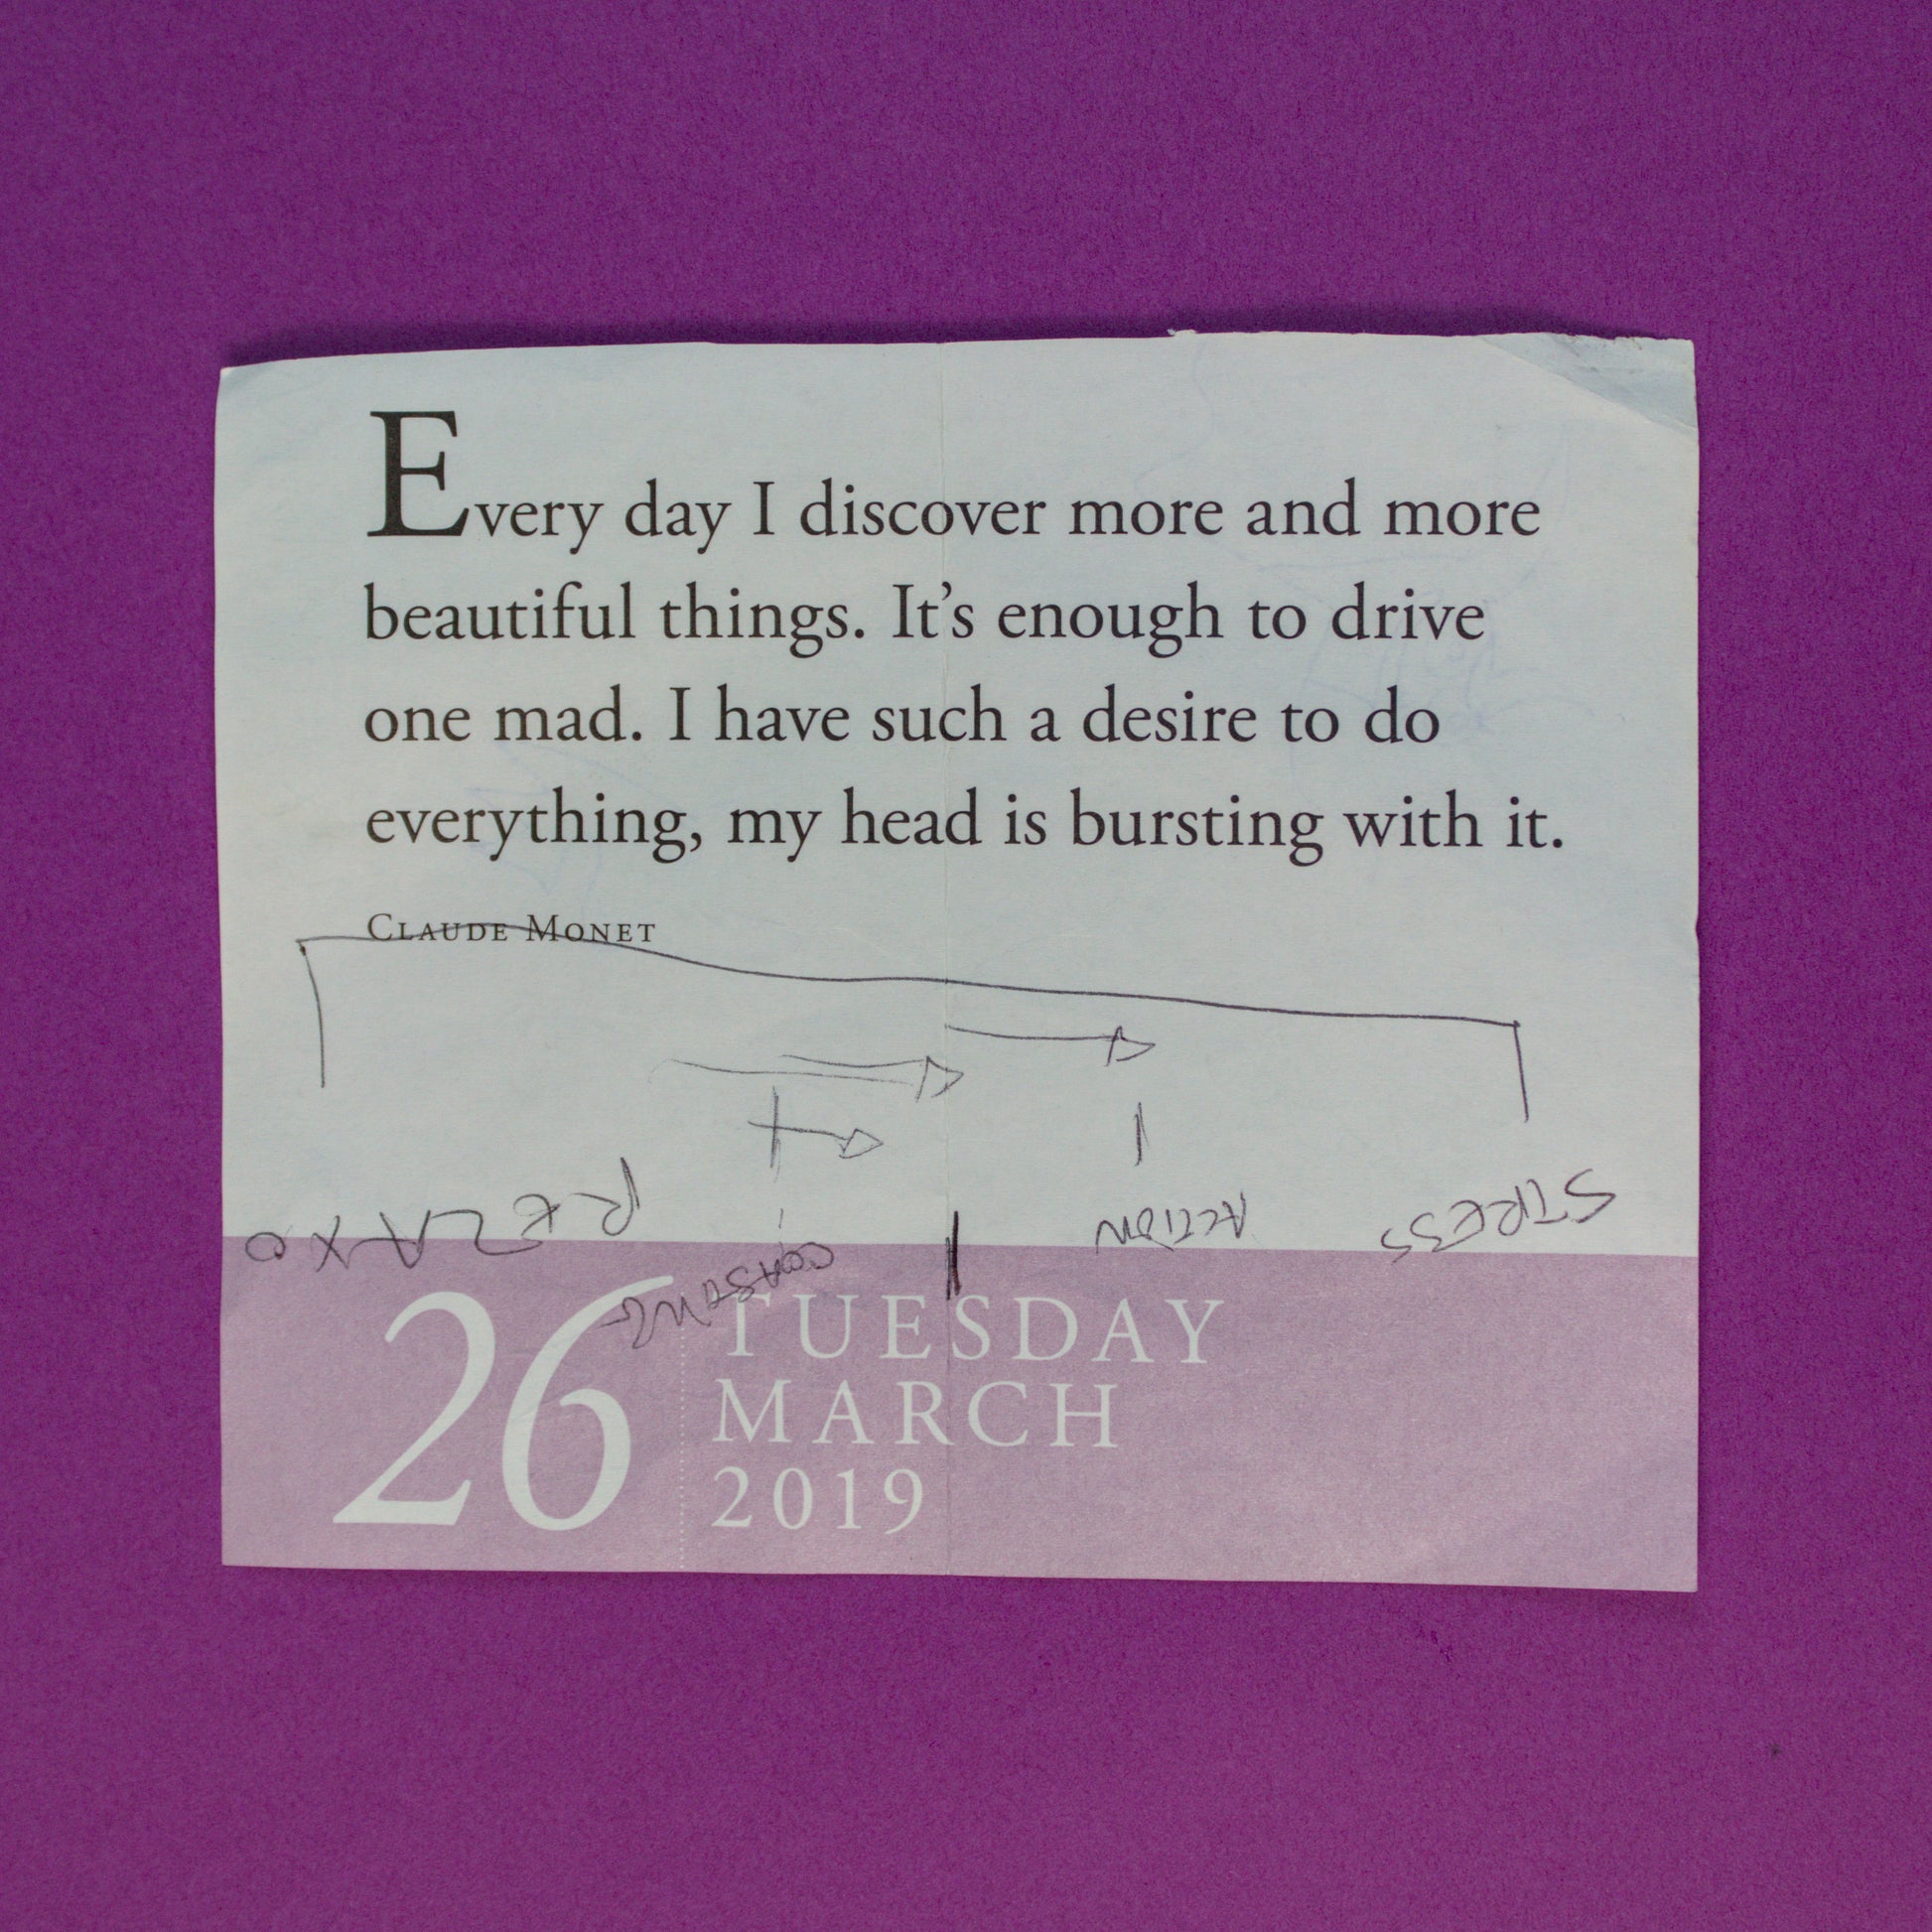 Every day I discover more and more
beautiful things. It's enough to drive
one mad. I have such a desire to do
everything, my head is bursting with it.
CLAUDE MONET
STRESS
ACTION
26
TUESDAY
MARCH
2019